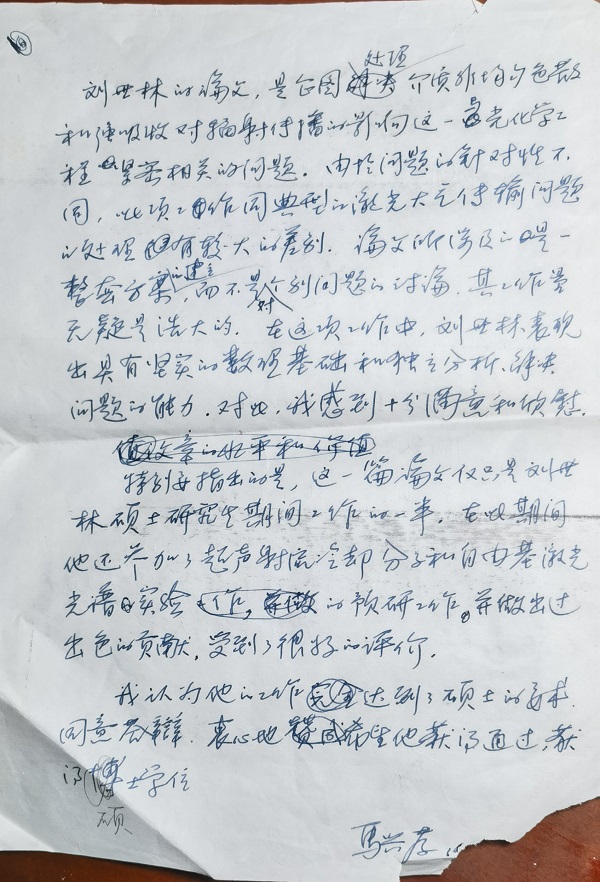 处理
刘世林的论文，是企图解决介质非均匀色散
和强吸收对辐射传播的影响这一与光化学工
程紧密相关的问题。由于问题的针对性不
同，此项工作同典型的激光大气传输问题
的处理有较大的差别。论文所涉及的是一
整套方案的建立，而不是对个别问题的讨论，其工作量
无疑是浩大的。在这项工作中，刘世林表现
出具有坚实的数理基础和独立分析、解决
问题的能力。对此，我感到十分满意和欣慰。
文章的水平和价值
特别要指出的是，这一篇论文仅只是刘世
林硕士研究生期间工作的一半。在此期间
他还参加了超声射流冷却分子和自由基激光
光谱的实验工作，的预研工作。并做出过
出色的贡献，受到了很好的评价。
我认为他的工作完全达到了硕士的要求，
同意答辩。衷心地希望他获得通过，获
得博士学位
硕
马兴孝